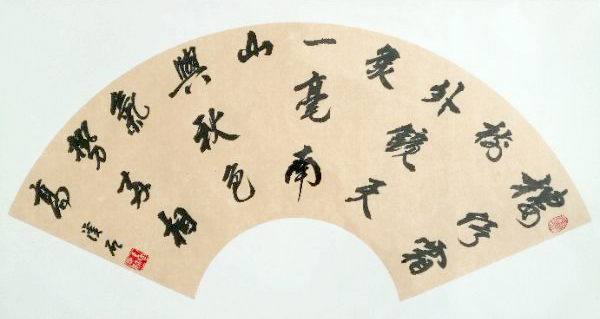 樓倚霜
樹
外鏡天
無
一毫南
山
與秋色
氣
勢兩相
高